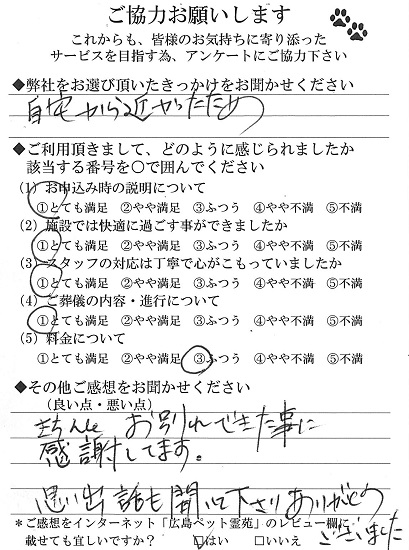 ご協力お願いします
これからも、皆様のお気持ちに寄り添った
サービスを目指す為、アンケートにご協力下さい
◆弊社をお選び頂いたきっかけをお聞かせください
自宅から近かったため
◆ご利用頂きまして、どのように感じられましたか
該当する番号を○で囲んでください
(1) お申込み時の説明について
①とても満足 ②やや満足 ③ふつう ④やや不満 ⑤不満
(2) 施設では快適に過ごす事ができましたか
①とても満足 ②やや満足 ③ふつう ④やや不満 ⑤不満
(3) スタッフの対応は丁寧で心がこもっていましたか
①とても満足 ②やや満足 ③ふつう ④やや不満 ⑤不満
(4) ご葬儀の内容・進行について
①とても満足 ②やや満足 ③ふつう ④やや不満 ⑤不満
(5) 料金について
①とても満足 ②やや満足 ③ふつう ④やや不満 ⑤不満
◆その他ご感想をお聞かせください
(良い点・悪い点)
きちんと お別れできた事に
感謝してます。
思い出話も聞いて下さりありがとう
ございました
*ご感想をインターネット「広島ペット霊苑」のレビュー欄に
載せても宜しいですか? □はい □いいえ